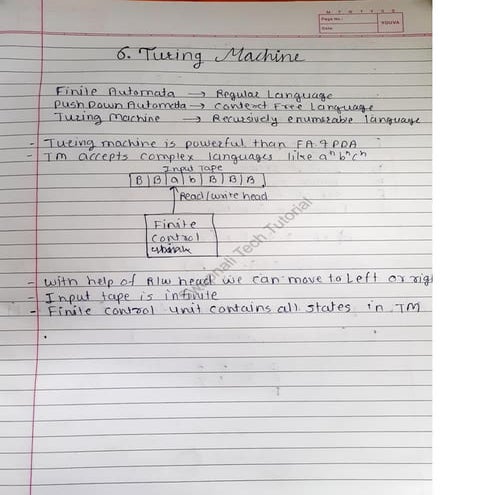 M T W T F S S
Page No.:
Date:
YOUVA
6. Turing Machine
Finite Automata → Regular Language
Push Down Automata → Context Free Language
Turing Machine → Recursively enumerable language
- Turing machine is powerful than FA & PDA
- TM accepts complex languages like aⁿbⁿcⁿ
Input Tape
B B a b B B B
Read/write head
Finite
Control
- With help of R/W head we can move to Left or rig
- Input tape is infinite
- Finite control unit contains all states in TM
Tech Tutorial